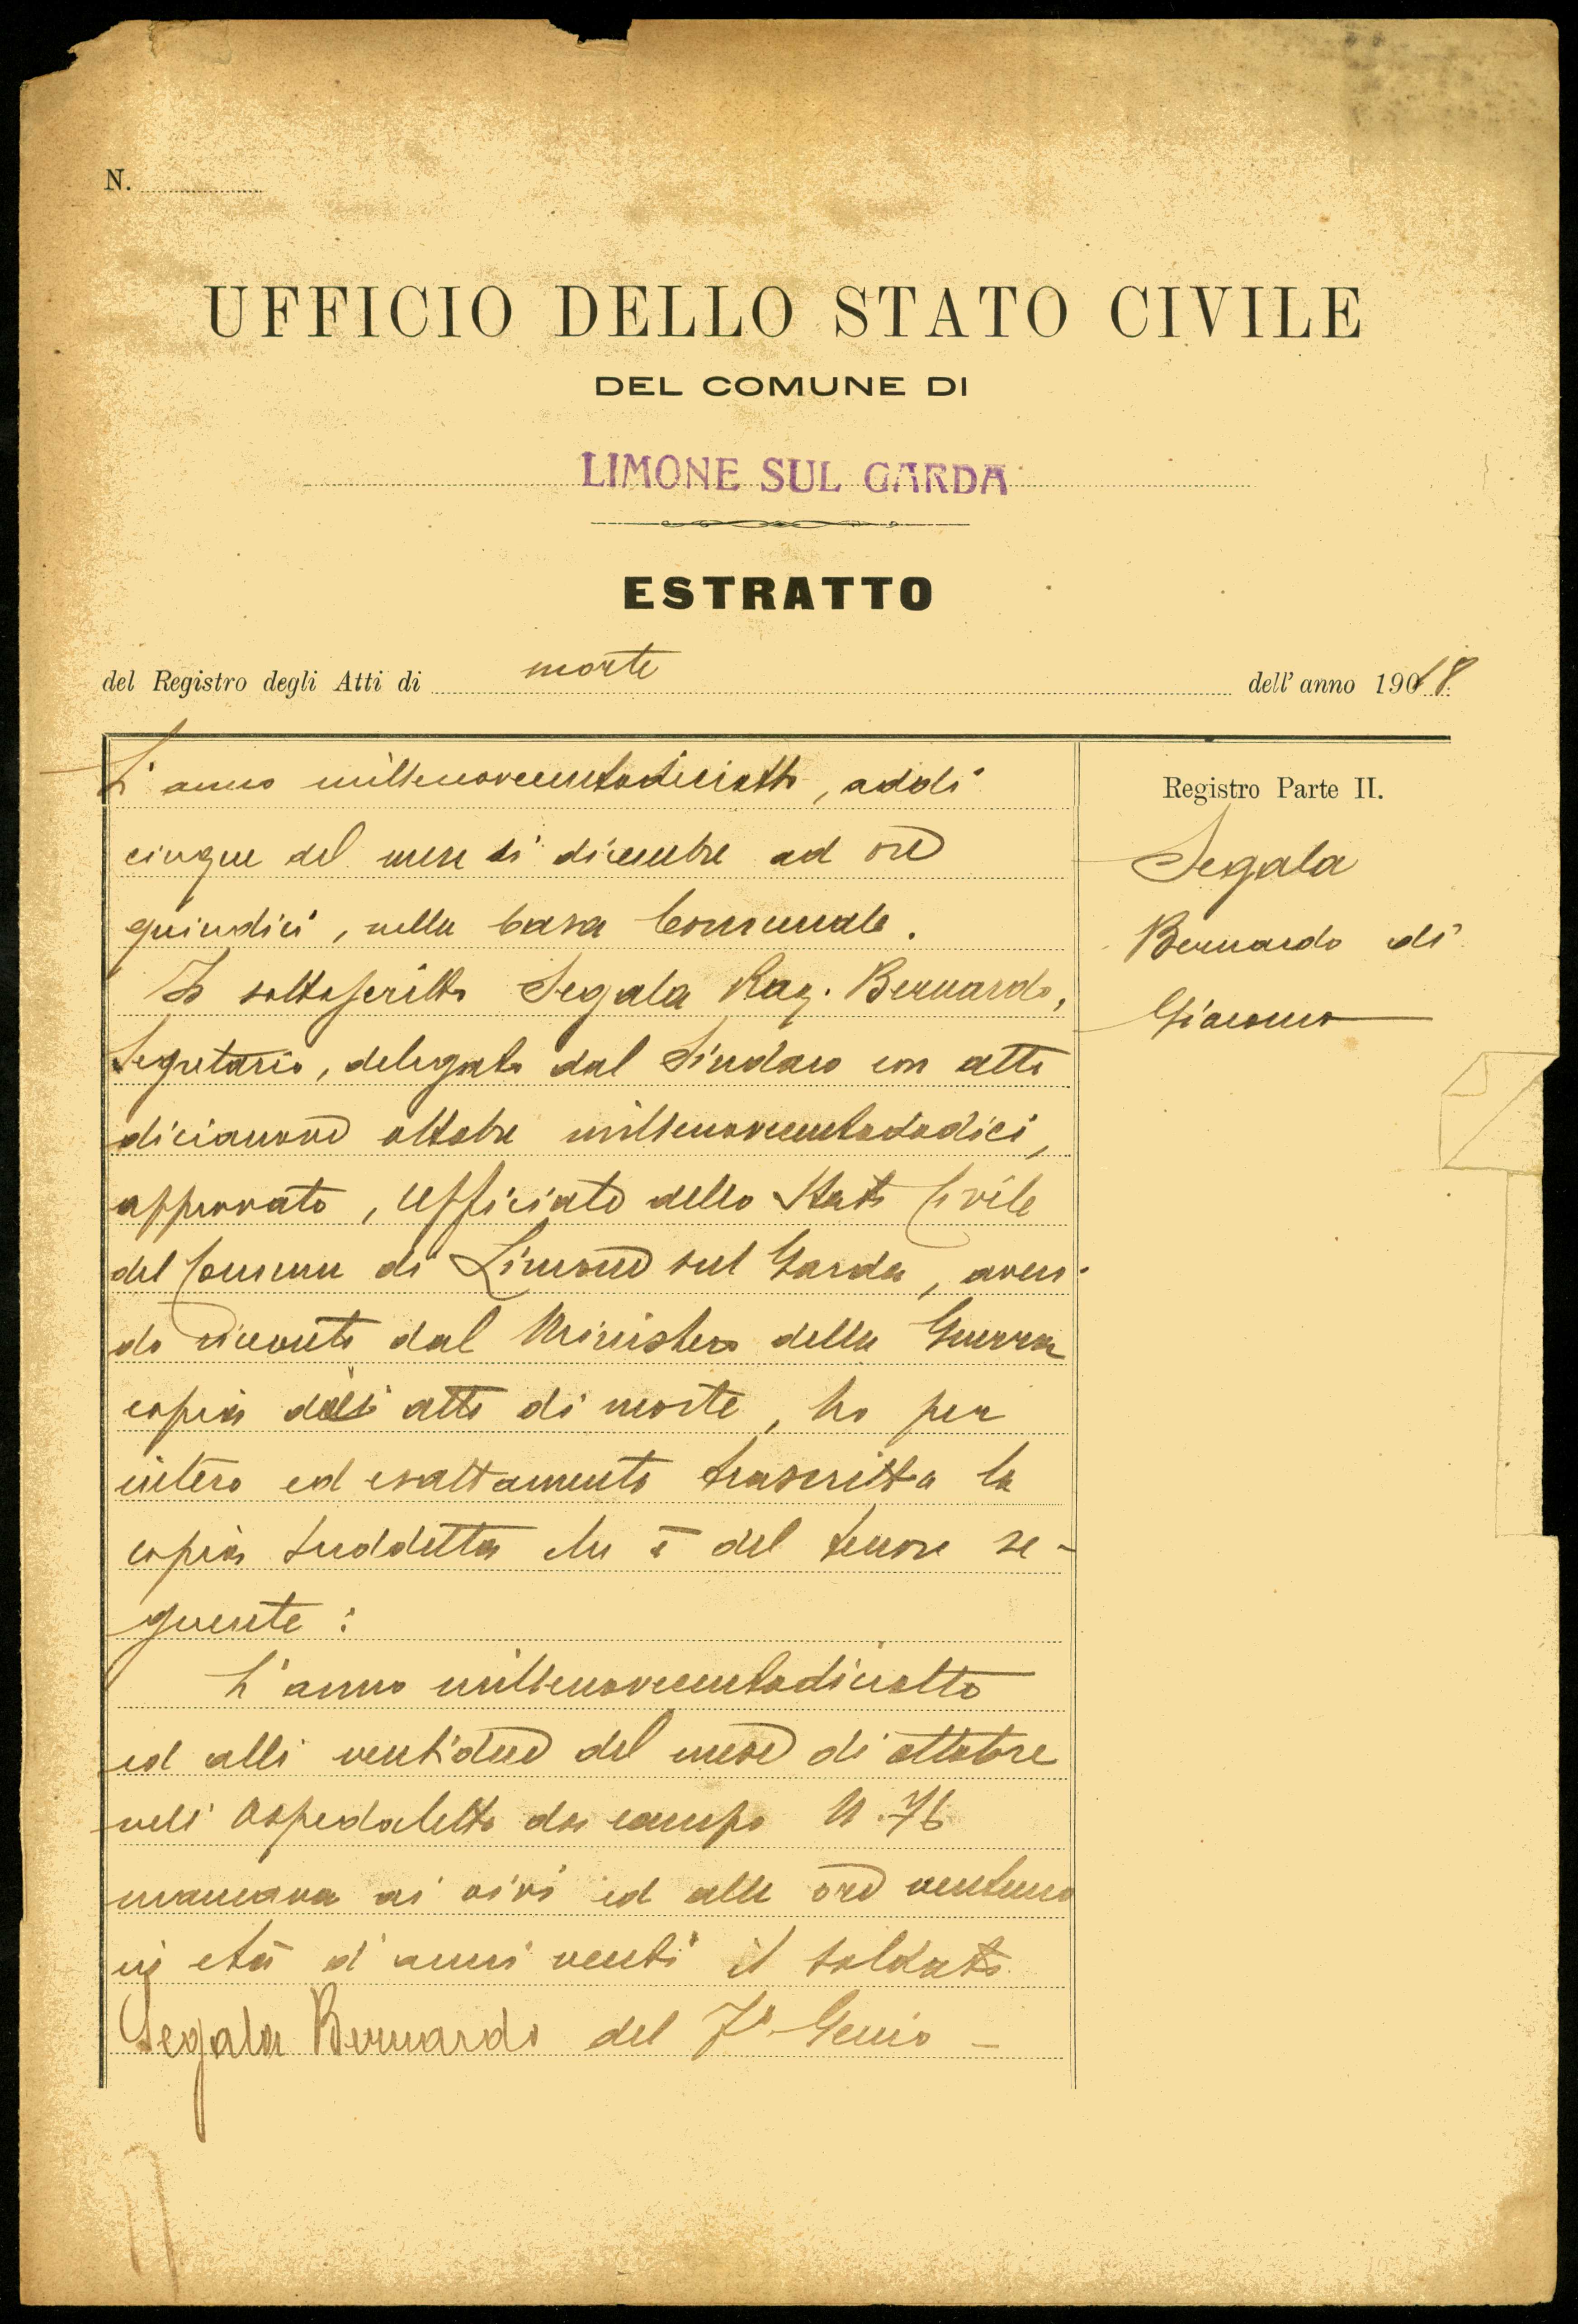 N.
UFFICIO DELLO STATO CIVILE
DEL COMUNE DI
LIMONE SUL GARDA
ESTRATTO
del Registro degli Atti di morte dell' anno 1918
L' anno millenovecentodiciotto, addì
cinque del mese di dicembre ad ore
quindici, nella Casa Comunale.
Io sottoscritto Segala Rag. Bernardo,
Segretario, delegato dal Sindaco con atto
diciannove ottobre millenovecentododici,
approvato, Ufficiale dello Stato Civile
del Comune di Limone sul Garda, aven-
do ricevuto dal Ministero della Guerra
copia atto di morte, ho per
intero ed esattamente trascritta la
copia suddetta che è del tenore se-
guente:
L' anno millenovecentodiciotto
ed alli ventidue del mese di ottobre
nell' Ospedaletto da campo N. 76
mancava ai vivi ed alle ore ventuno
in età d' anni venti il soldato
Segala Bernardo del 7° Genio -
Registro Parte II.
Segala
Bernardo di
Giacomo